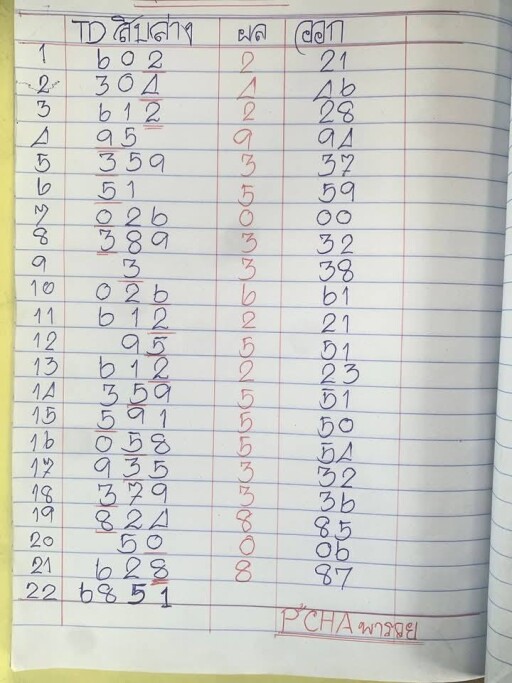 TD สิบล่าง ผล ออก
1 602 2 21
2 304 4 46
3 612 2 28
4 95 9 94
5 359 3 37
6 51 5 59
7 026 0 00
8 389 3 32
9 3 3 38
10 026 6 61
11 612 2 21
12 95 5 51
13 612 2 23
14 359 5 51
15 591 5 50
16 058 5 54
17 935 3 32
18 379 3 36
19 824 8 85
20 50 0 06
21 628 8 87
22 6851
P'CHA พารวย